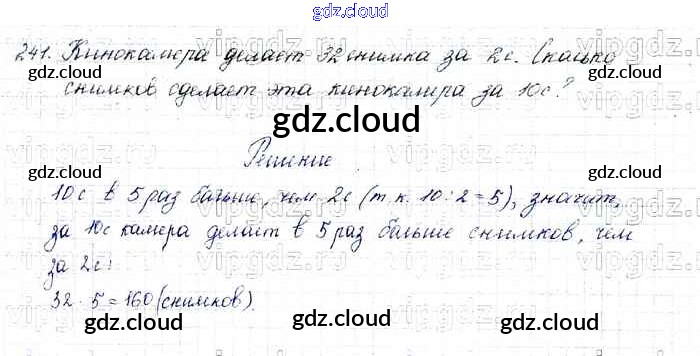 gdz.cloud
241. Кинокамера делает 32 снимка за 2с. Сколько
gdz.cloud gdz.cloud
снимков сделает эта кинокамера за 10с?
gdz.cloud
Решение
gdz.cloud gdz.cloud
10с в 5 раз больше, чем 2с (т.к. 10:2=5), значит,
за 10с камера делает в 5 раз больше снимков, чем
gdz.cloud
за 2с:
gdz.cloud gdz.cloud
32·5=160 (снимков).
gdz.cloud
gdz.cloud gdz.cloud